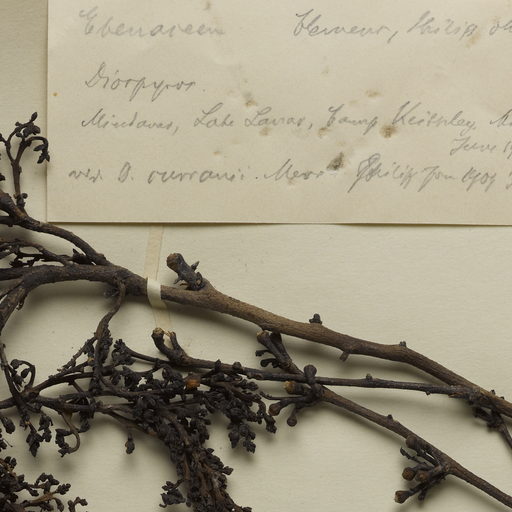 Ebenaceen Clemens, Philip
Diospyros
Mindanao, Lake Lanao, Camp Keithley,
June
D. curranii Merr. Philip Jrn 1909